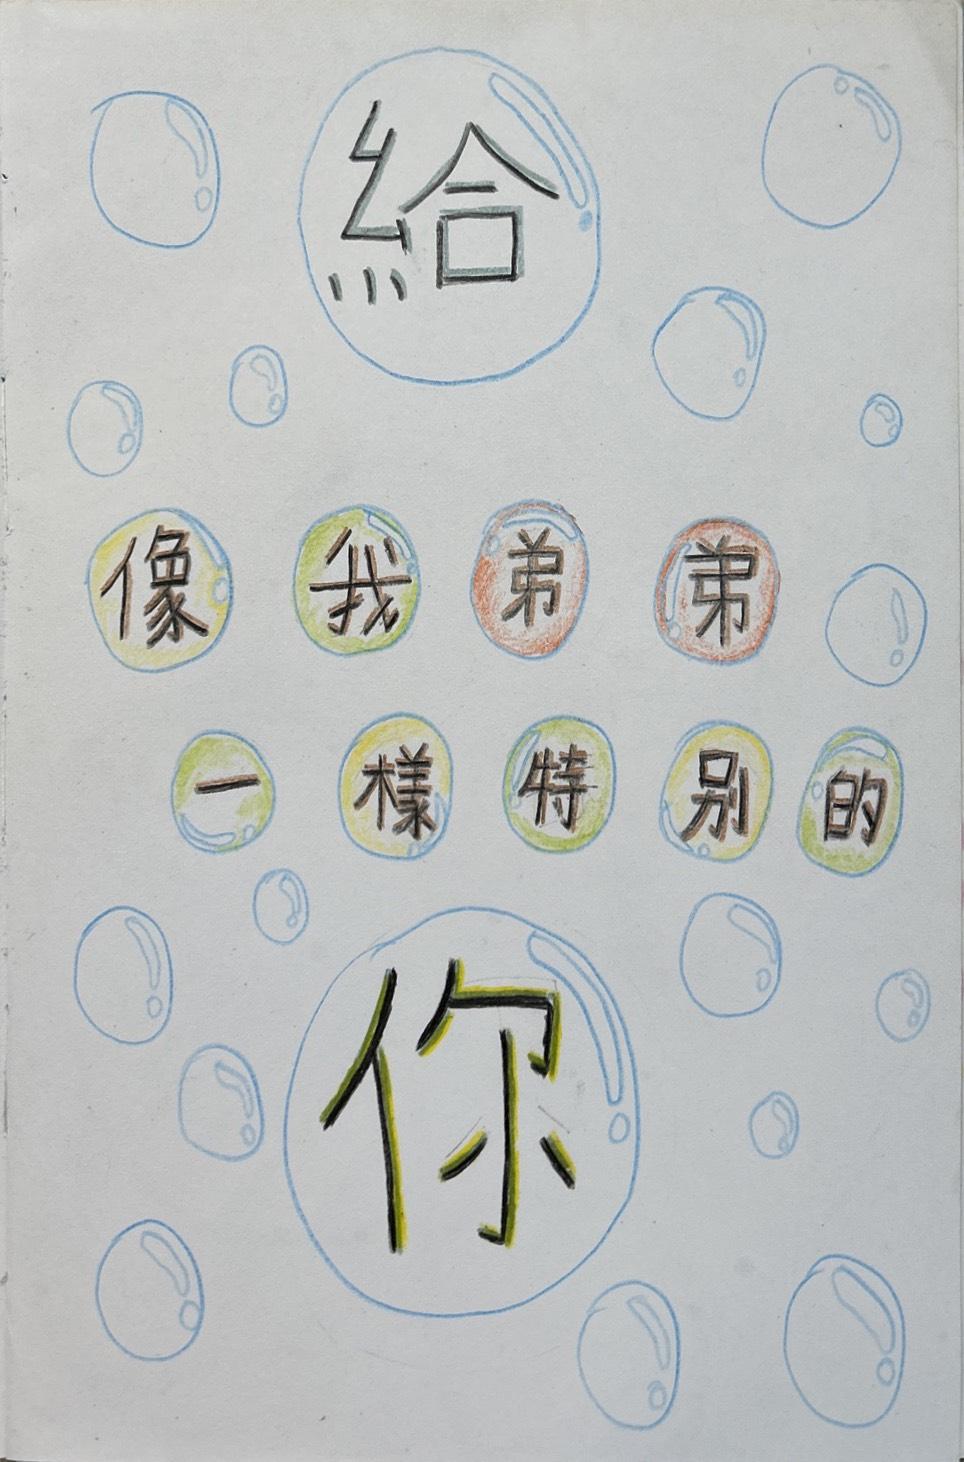 給
像我弟弟
一樣特別的
你